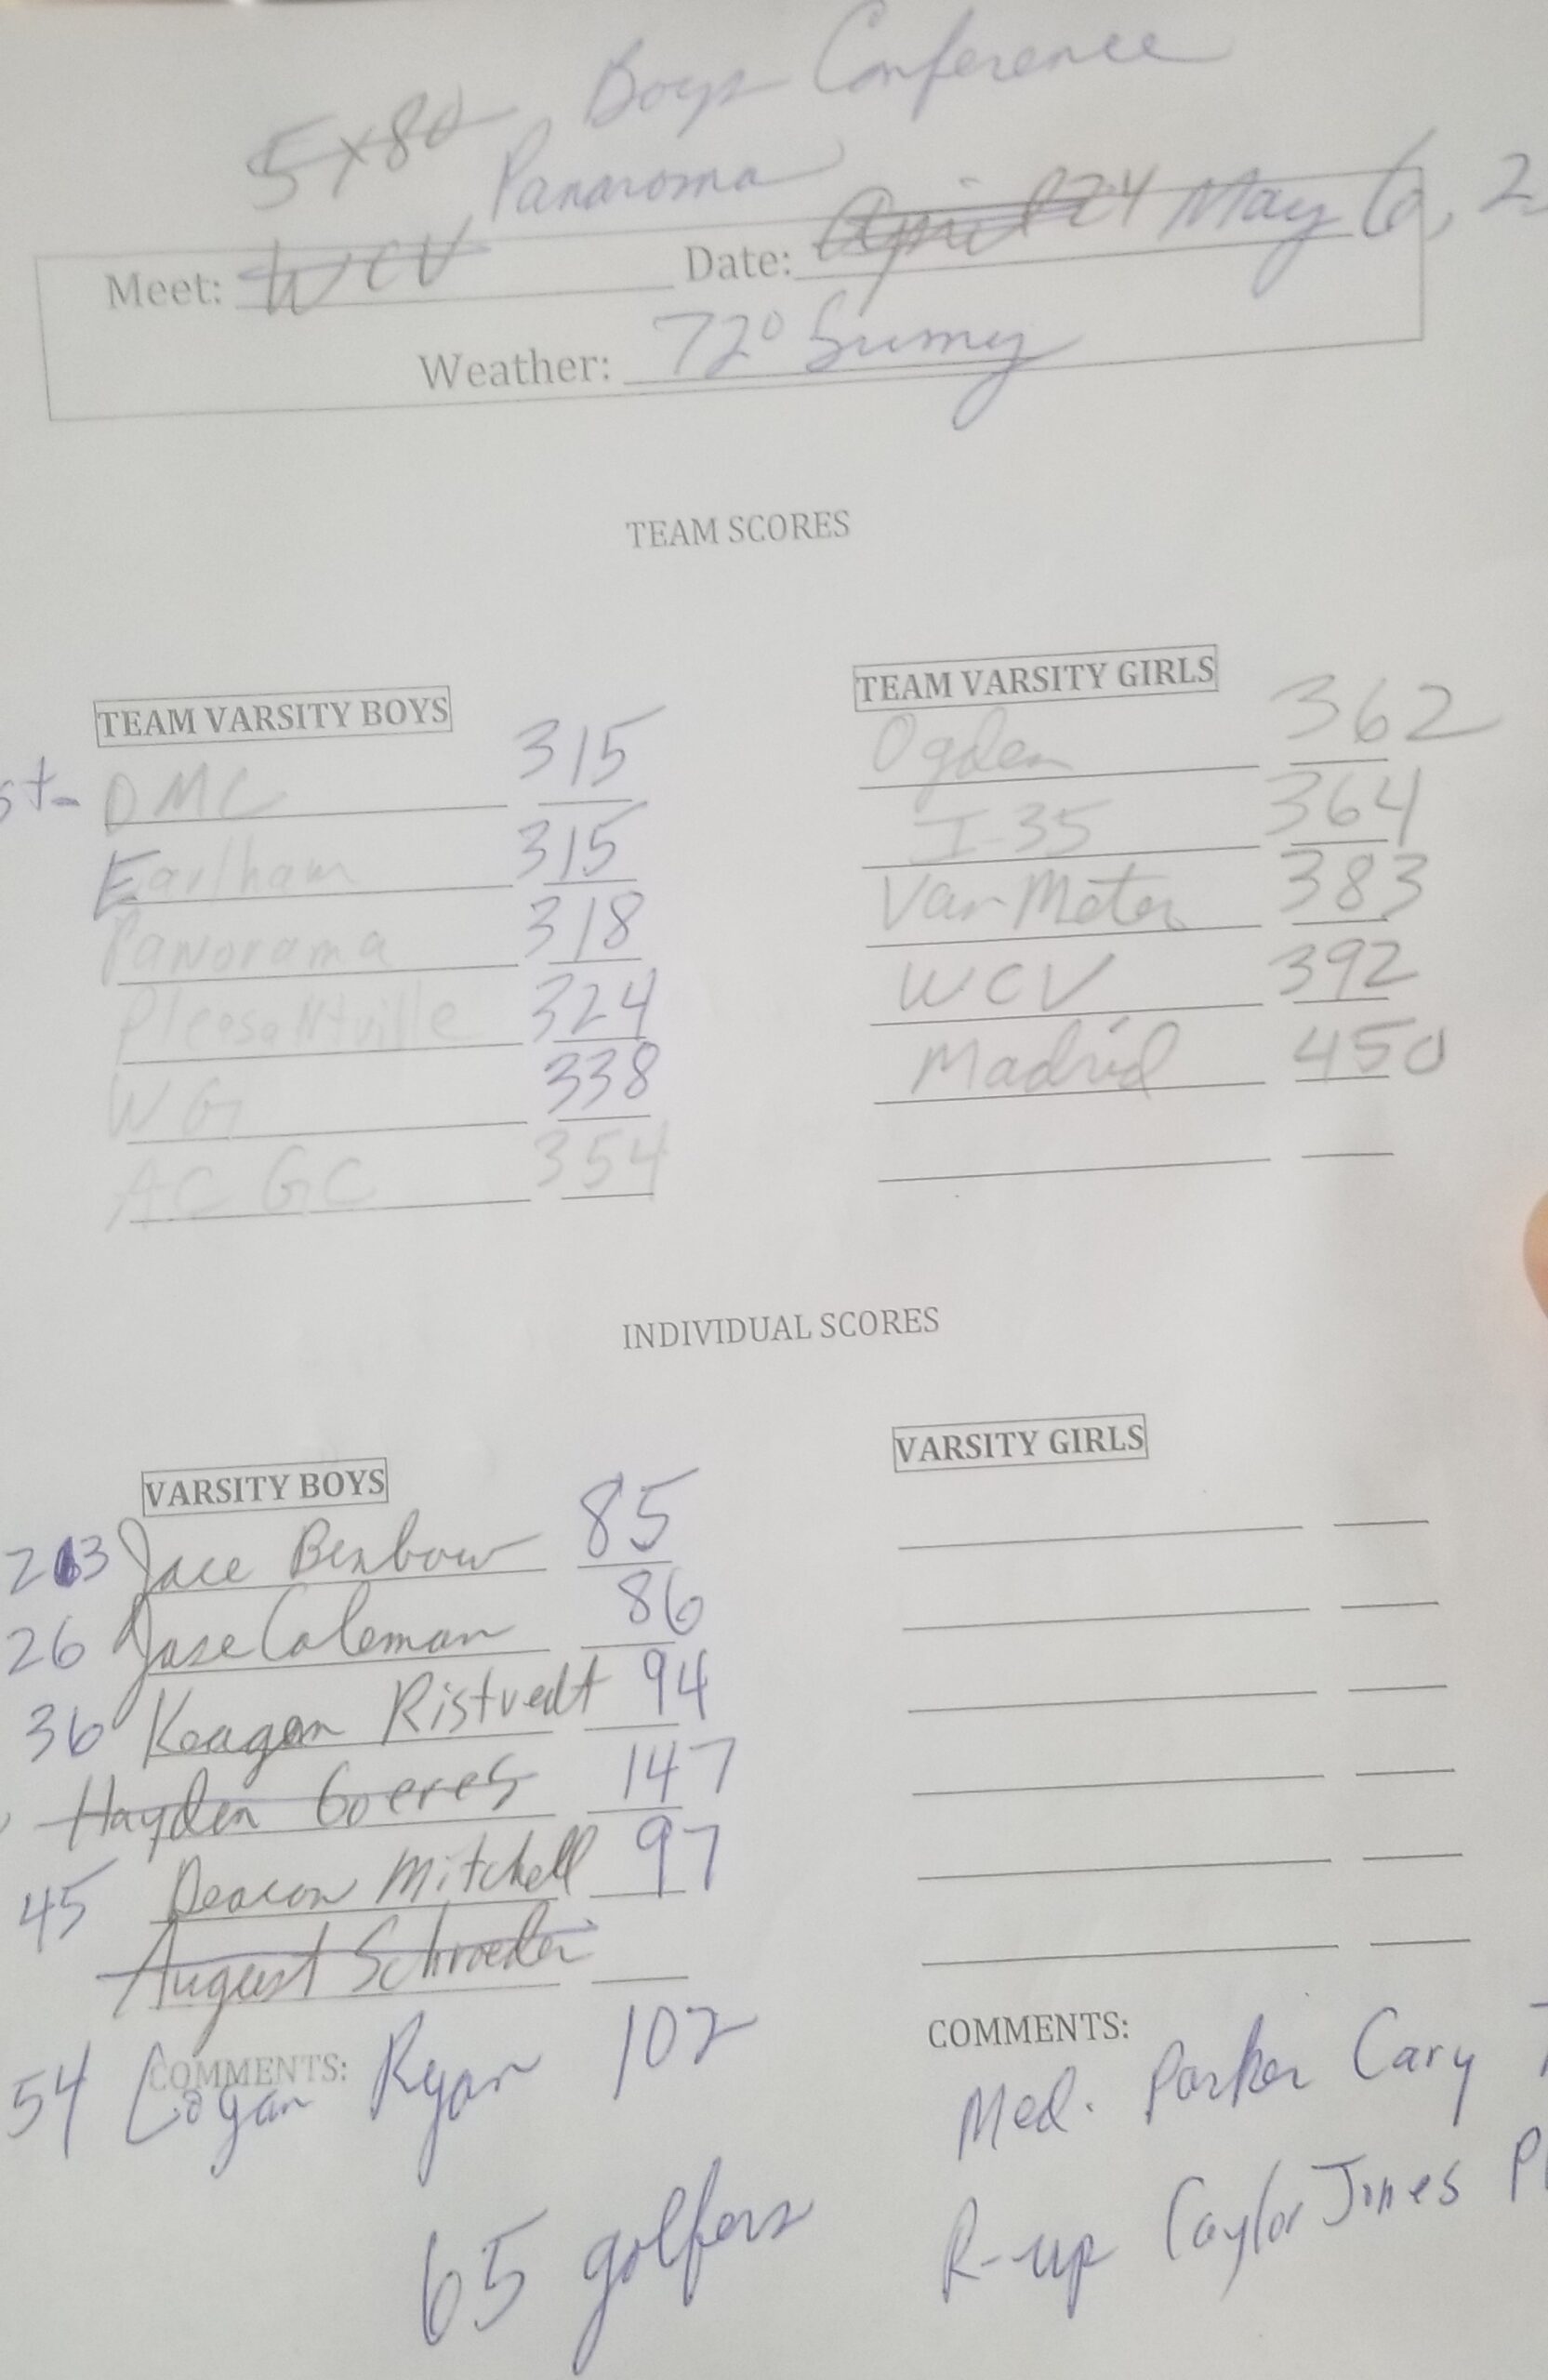 Boys Conference
5x80
Panaroma
Meet: WCV Date: April 24 May 6, 2
Weather: 72° Sunny
TEAM SCORES
TEAM VARSITY BOYS
st- DMC 315
Earlham 315
Panorama 318
Pleasantville 324
WG 338
AC GC 354
TEAM VARSITY GIRLS
Ogden 362
I-35 364
Van Meter 383
WCV 392
Madrid 450
INDIVIDUAL SCORES
VARSITY BOYS
23 Jace Benbow 85
26 Jase Coleman 86
36 Keagan Ristvedt 94
Hayden Goeres 147
45 Deacon Mitchell 97
August Schroeder
COMMENTS:
54 Logan Ryan 102
65 golfers
VARSITY GIRLS
COMMENTS:
Med. Parker Cary
R-up Caylor Jones Pl